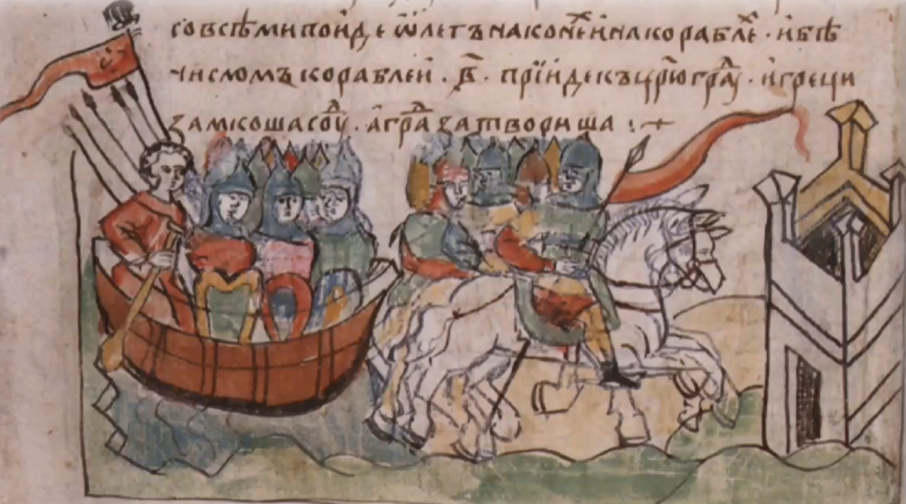 со всѣми поиде ѡлегъ на конеⷯ и на кораблеⷯ · и бѣ
числомъ кораблеи · в҃ · прїиде къ цр҃югра · и греци
замкоша соуⷣ · а граⷣ затвориша :·